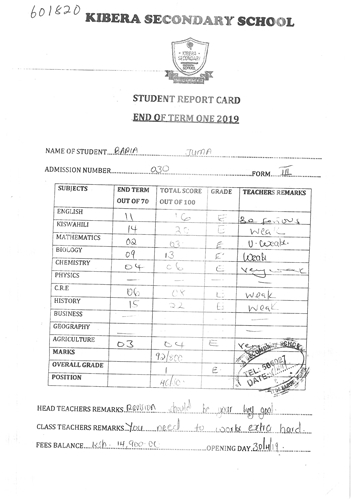 601820
KIBERA SECONDARY SCHOOL
KIBERA
SECONDARY
SCHOOL
STUDENT REPORT CARD
END OF TERM ONE 2019
NAME OF STUDENT BARIA JUMA
ADMISSION NUMBER 030 FORM III
SUBJECTS END TERM OUT OF 70 TOTAL SCORE OUT OF 100 GRADE TEACHERS REMARKS
ENGLISH 11 16 E Be serious
KISWAHILI 14 20 E Weak
MATHEMATICS 02 03 E V. Weak
BIOLOGY 09 13 E Weak
CHEMISTRY 04 06 E very
PHYSICS — — — —
C.R.E 06 E Weak
HISTORY 15 22 E Weak
BUSINESS — — — —
GEOGRAPHY — — — —
AGRICULTURE 03 04 E very
MARKS 92/800
OVERALL GRADE E
POSITION
TEL:
DATE:
HEAD TEACHERS REMARKS Revision should be your key goal
CLASS TEACHERS REMARKS You need to work extra hard.
FEES BALANCE ksh 14,900 OPENING DAY 30/4/19